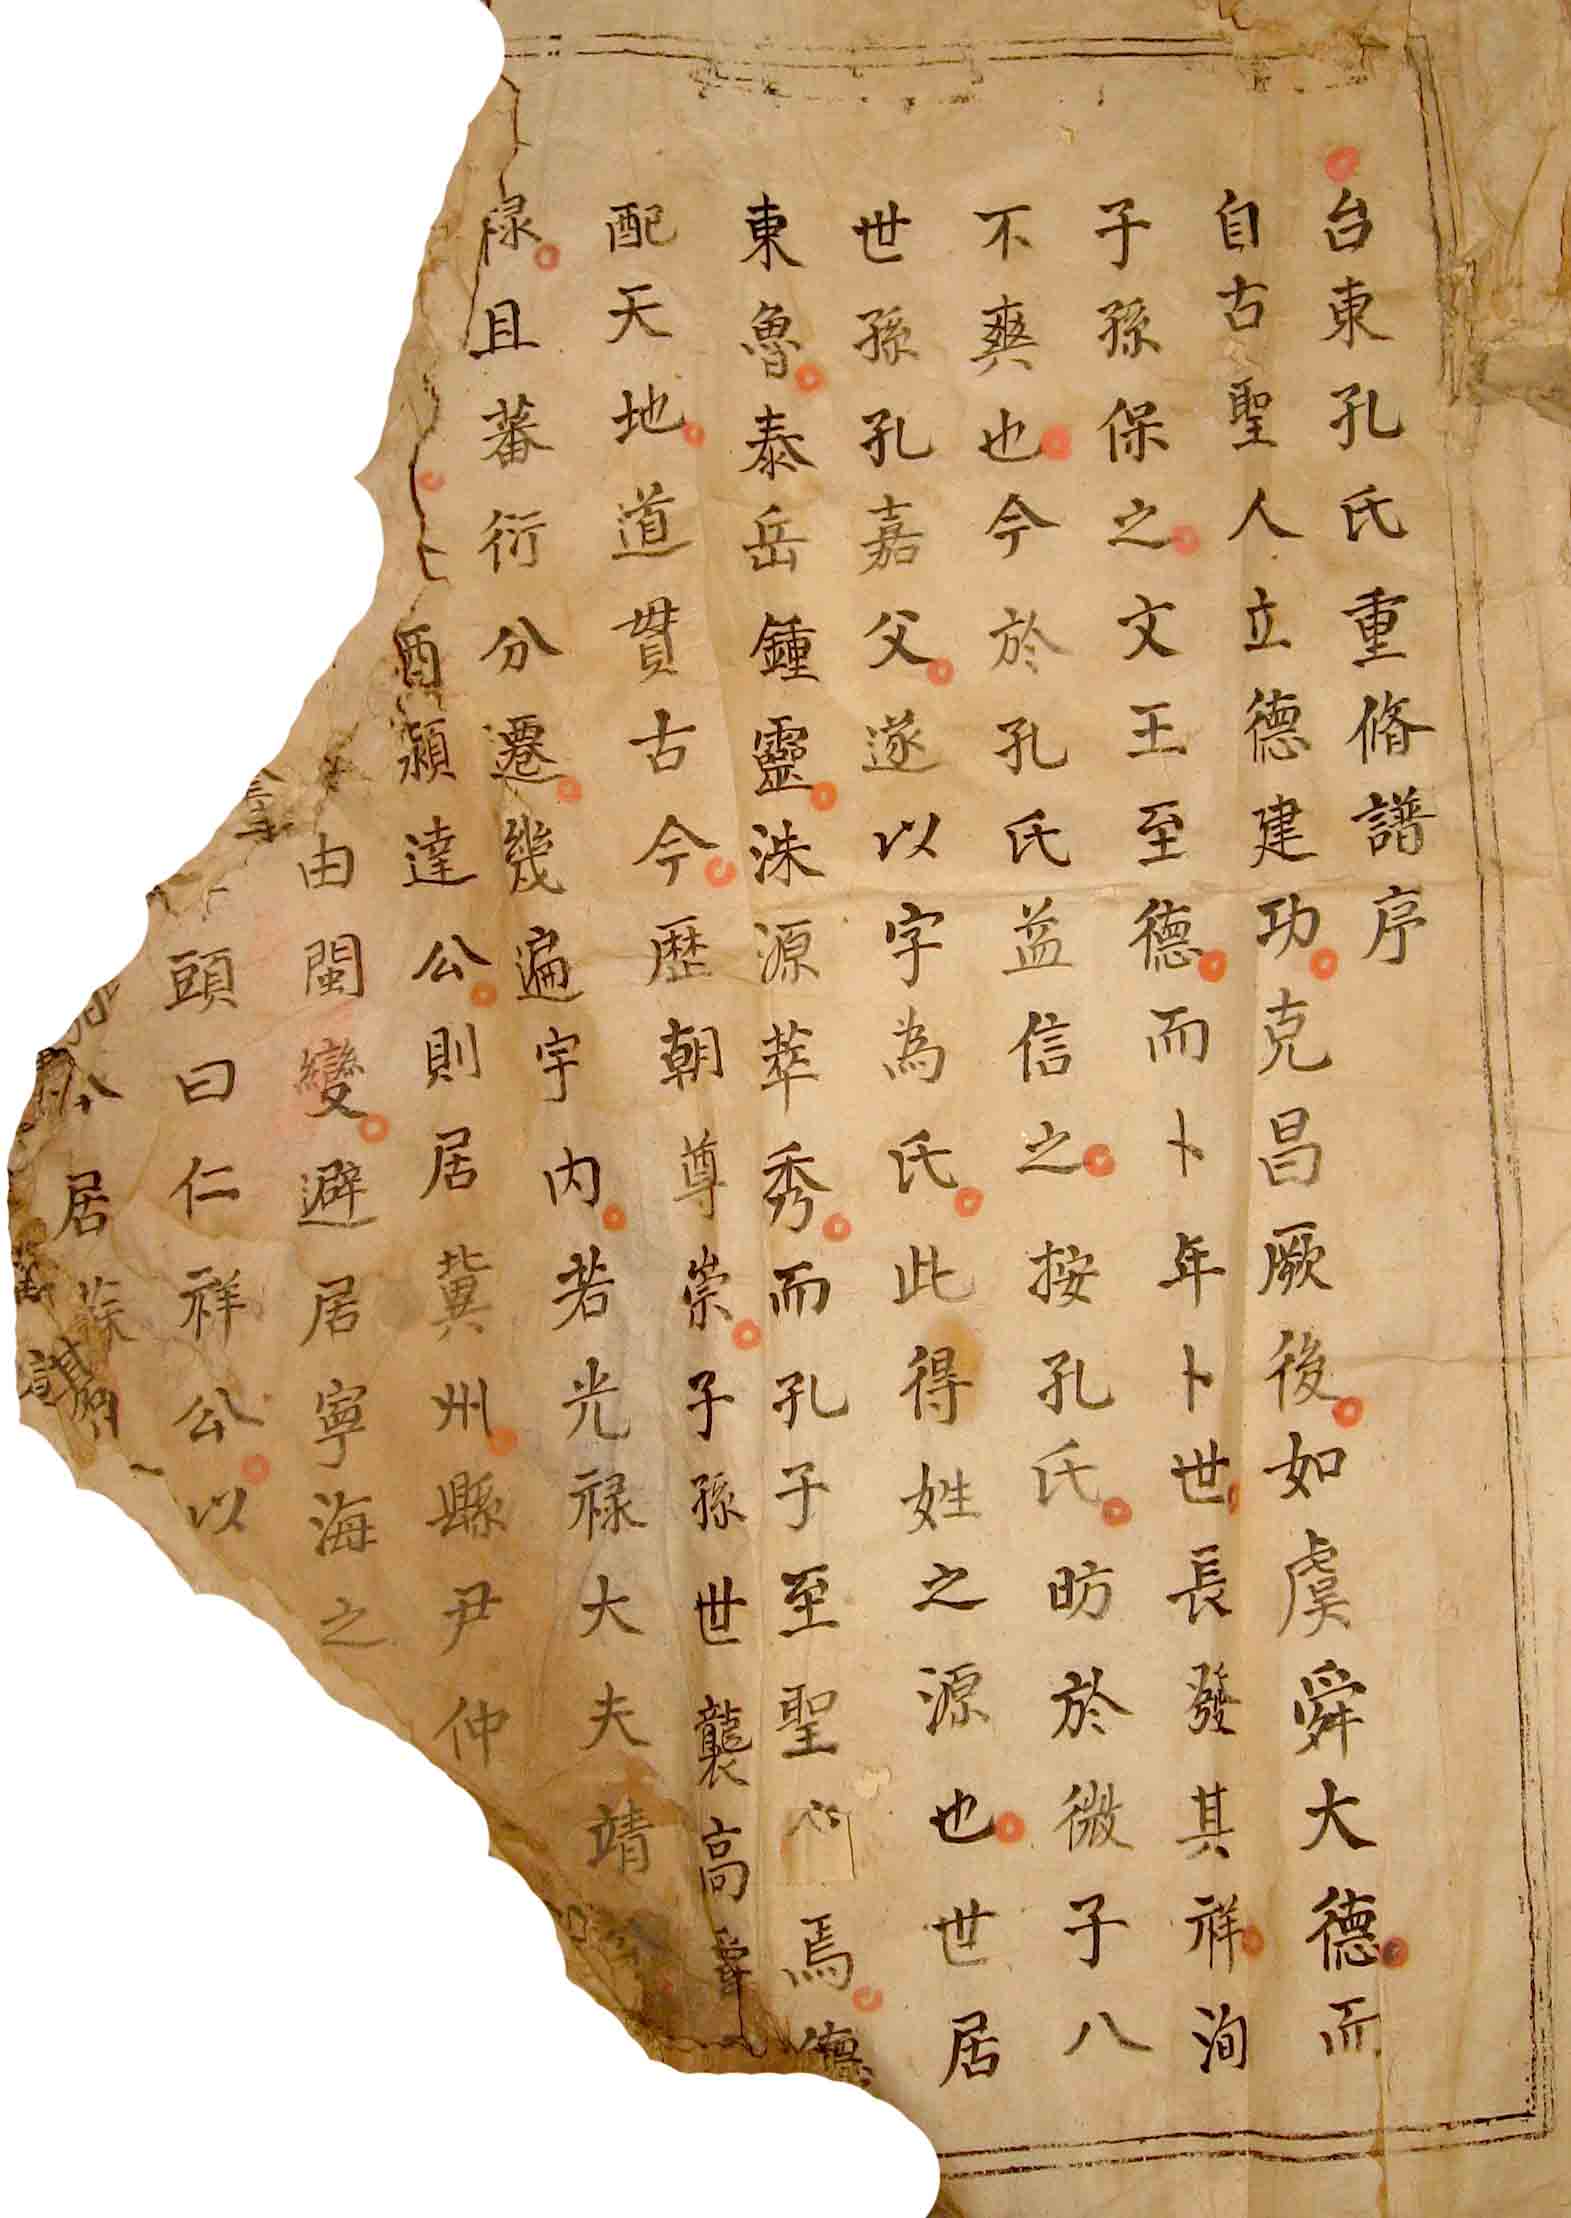 台東孔氏重脩譜序
自古聖人立德建功克昌厥後如虞舜大德而
子孫保之文王至德而卜年卜世長發其祥洵
不爽也今於孔氏益信之按孔氏昉於微子八
世孫孔嘉父遂以字為氏此得姓之源也世居
東魯泰岳鍾靈洙源萃秀而孔子至聖心焉德
配天地道貫古今歷朝尊崇子孫世襲高
祿且蕃衍分遷幾遍宇內若光祿大夫靖
穎達公則居冀州縣尹仲
由閩變避居寧海之
頭曰仁祥公以
公居